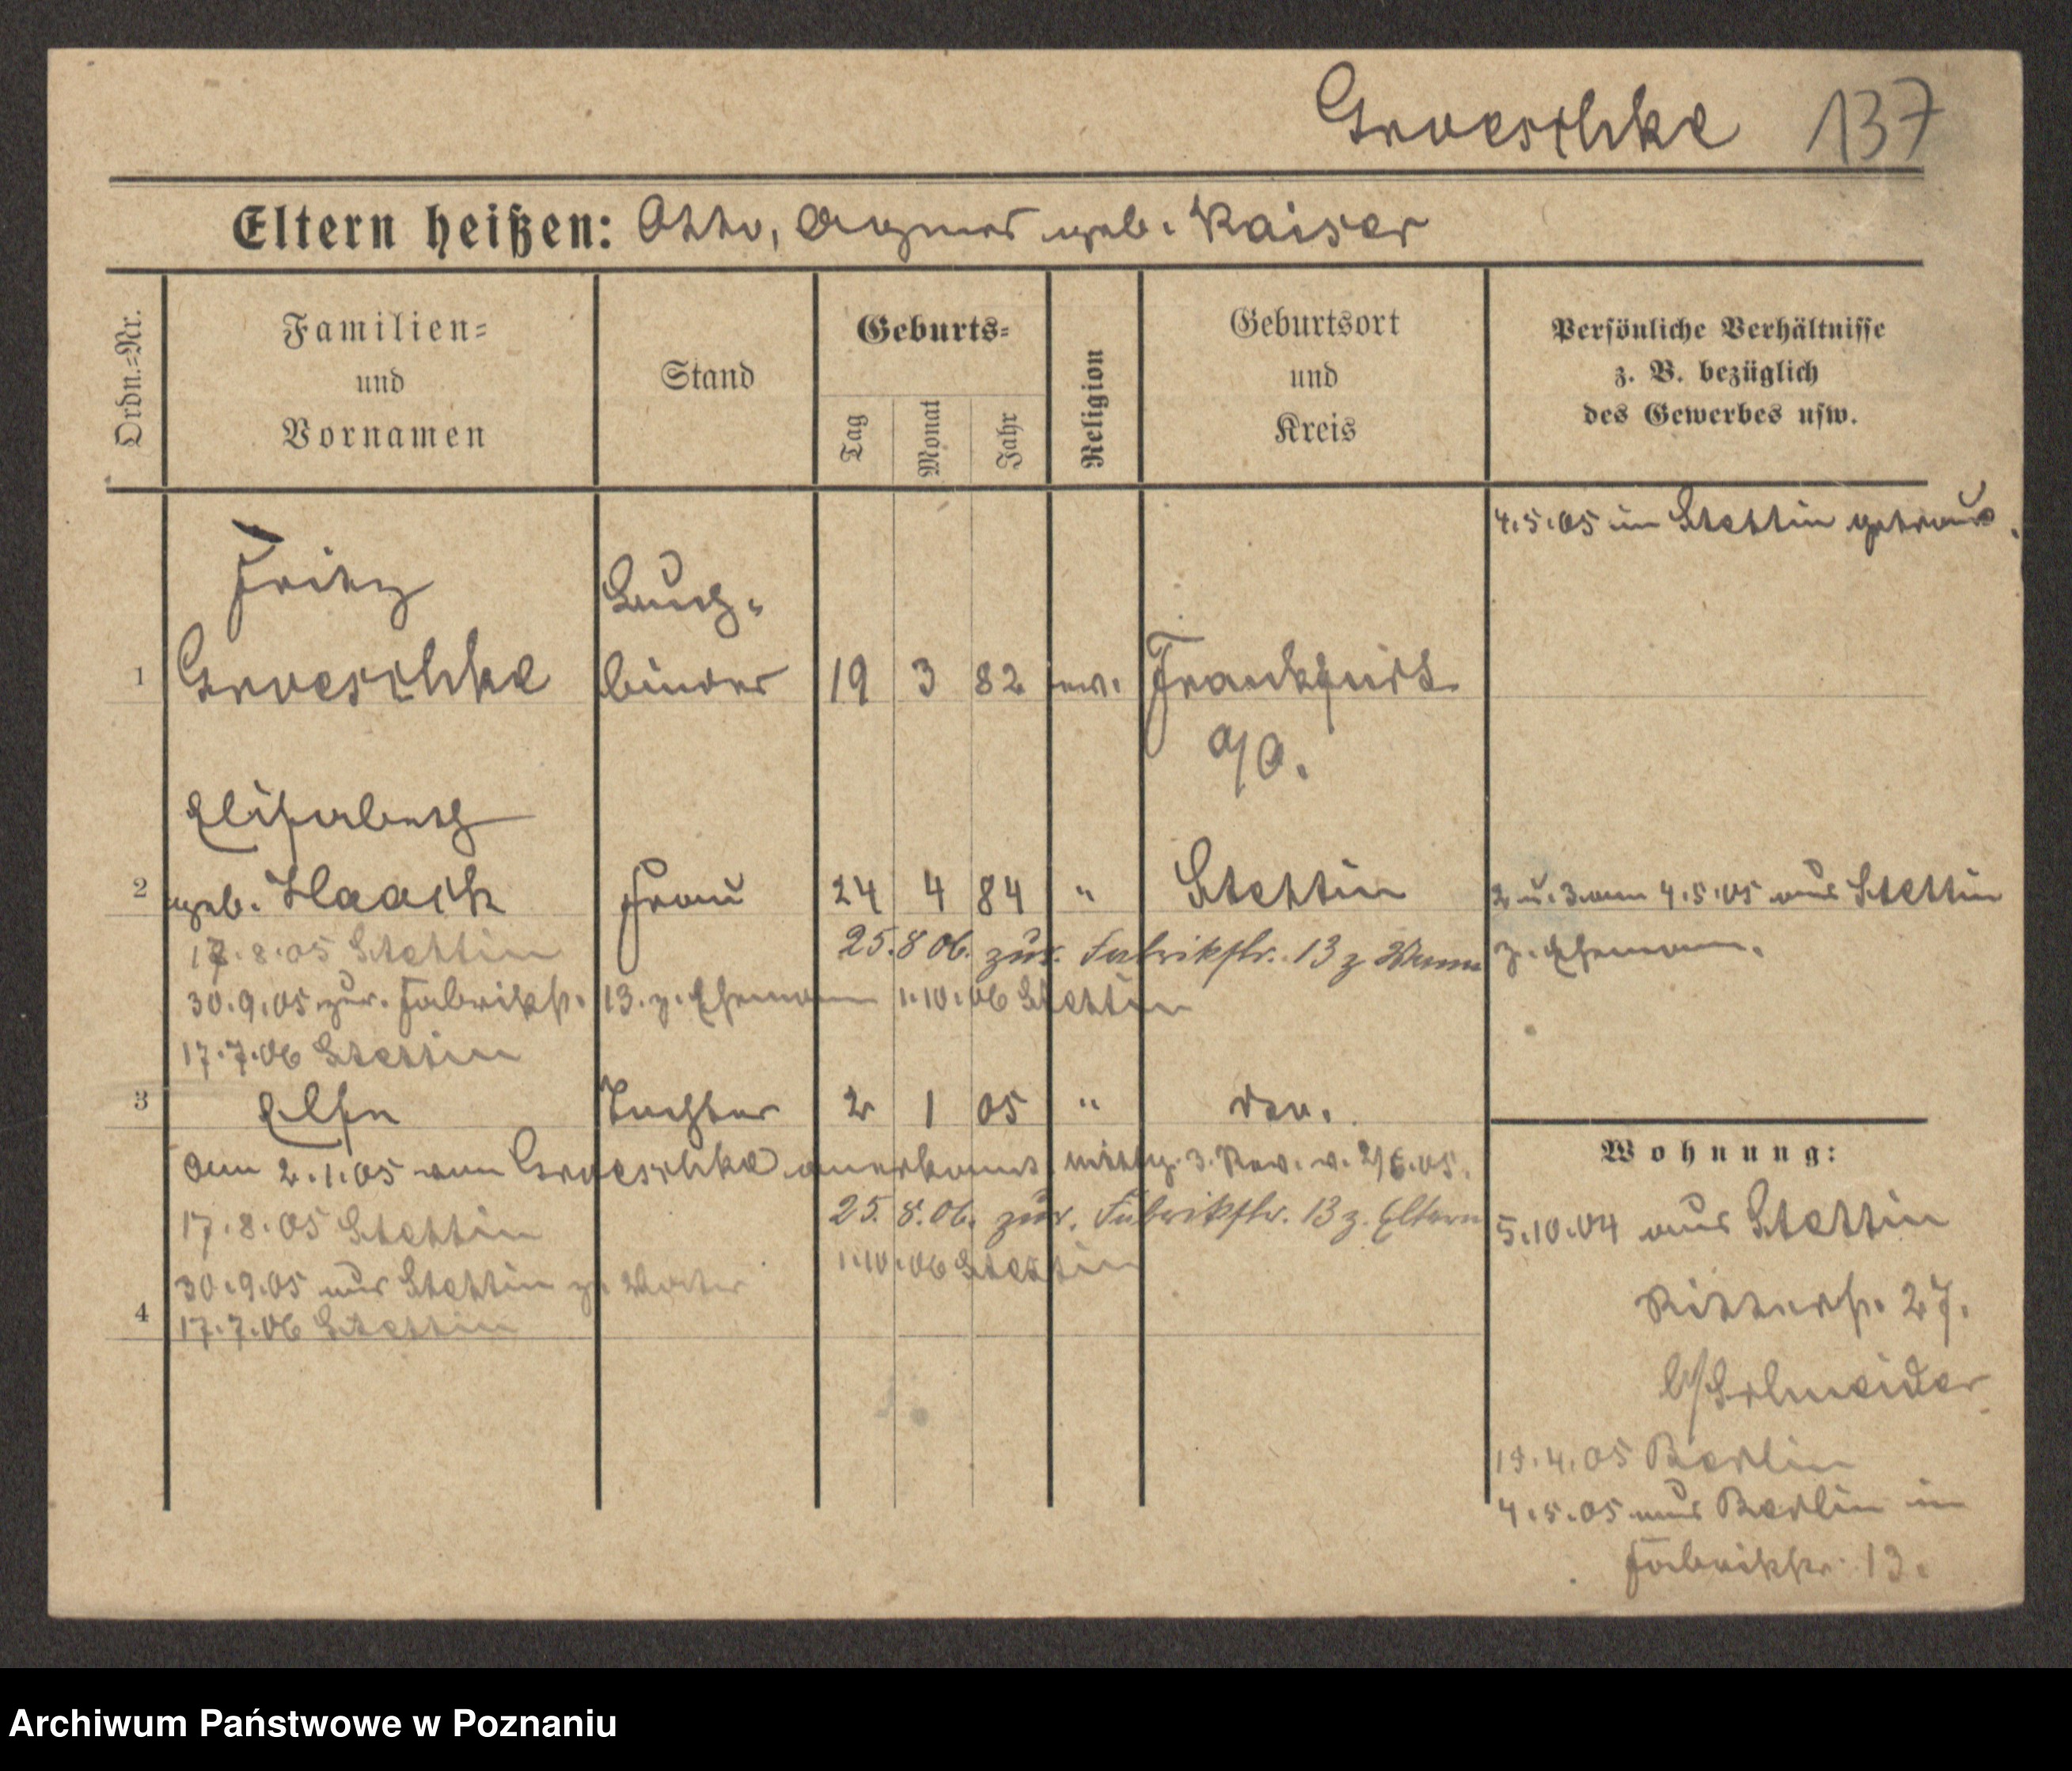 Groeschke 137
Eltern heißen: Otto, Agnes geb. Kaiser
Ordn.=Nr.
Familien=
und
Vornamen
Stand
Geburts=
Tag
Monat
Jahr
Religion
Geburtsort
und
Kreis
Persönliche Verhältnisse
z. B. bezüglich
des Gewerbes usw.
4.5.05 in Stettin getraut.
Fritz Buch=
1 Groeschke binder 19 3 82 ev. Frankfurt
a/O.
Elisabeth
2 geb. Haack Frau 24 4 84 " Stettin 2 u. 3 am 4.5.05 aus Stettin
z. Ehemann.
17.8.05 Stettin 25.8.06. zur. Fabrikstr. 13 z. Mann
30.9.05 zur. Fabrikstr. 13. z. Ehemann 1.10.06 Stettin
17.7.06 Stettin
3 Elsa Tochter 2 1 05 " do.
Am 2.1.05 von Groeschke anerkannt. 3. Rev. v. 2/6.05.
17.8.05 Stettin 25.8.06. zur. Fabrikstr. 13 z. Eltern
30.9.05 aus Stettin z. 1.10.06 Stettin
4 17.7.06 Stettin
Wohnung:
5.10.04 aus Stettin
Ritterstr. 27.
b/Schneider
19.4.05 Berlin
4.5.05 aus Berlin in
Fabrikstr. 13.
Archiwum Państwowe w Poznaniu